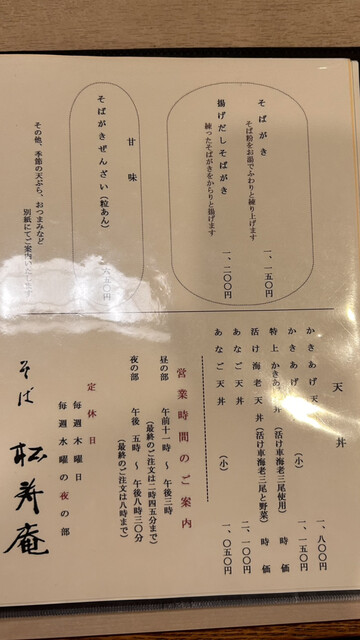 そばがき
そば粉をお湯でふわりと練り上げます
一、一五〇円
揚げだしそばがき
練ったそばがきをからりと揚げます
一、二〇〇円
甘味
そばがきぜんざい（粒あん）
五〇円
その他、季節の天ぷら、おつまみなど
別紙にてご案内いたします
天丼
かきあげ天丼
一、八〇〇円
かきあげ
（小）
一、一五〇円
特上かきあげ
丼（活け車海老三尾使用）
時価
活け海老天丼（活け車海老三尾と野菜）
時価
あなご天丼
二、一〇〇円
あなご天丼
（小）
一、〇五〇円
営業時間のご案内
昼の部
午前十一時 〜 午後三時
（最終のご注文は二時四五分まで）
夜の部
午後 五時 〜 午後八時三〇分
（最終のご注文は八時まで）
定休日
毎週木曜日
毎週水曜の夜の部
そば
松寿庵